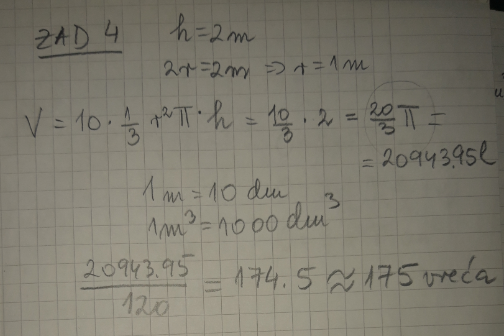 ZAD 4
h=2m
2r=2m => r=1m
V = 10 · 1/3 r²π · h = 10/3 · 2 = 20/3 π =
= 20943.95l
1m = 10 dm
1m³ = 1000 dm³
20943.95/120 = 174.5 ≈ 175 vreća